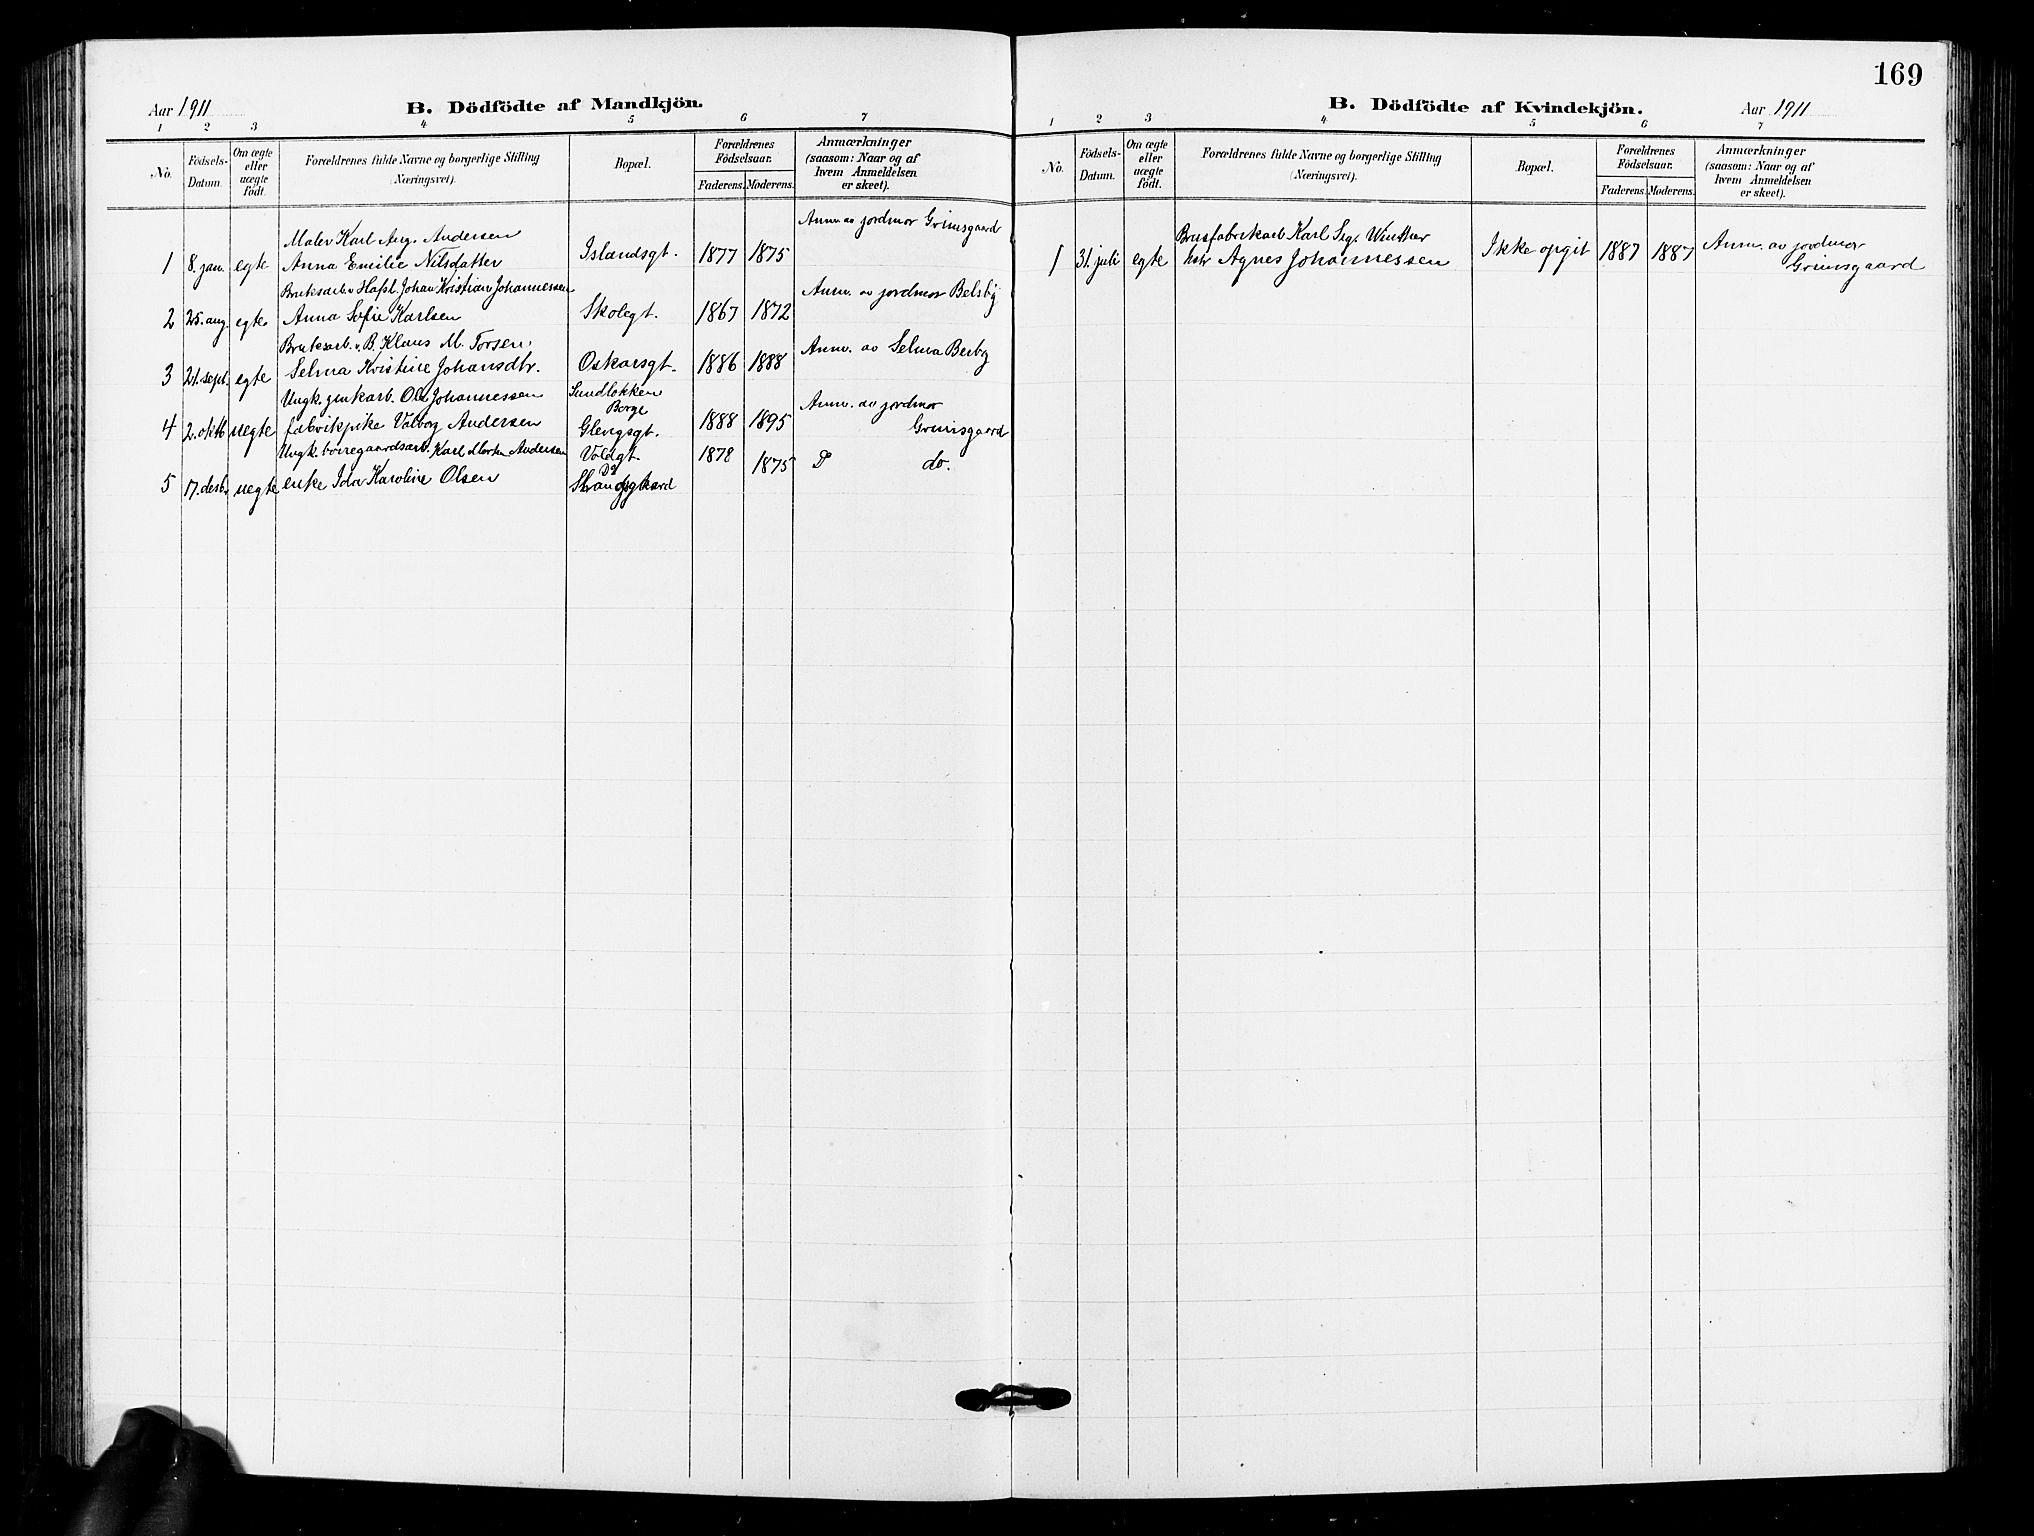 169
Aar 1911
B. Dödfödte af Mandkjön.
1 2 3 4 5 6 7
No.
Födsels-Datum.
Om ægte eller uægte födt.
Forældrenes fulde Navne og borgerlige Stilling (Næringsvei).
Bopæl.
Forældrenes Födselsaar.
Faderens. Moderens.
Anmærkninger (saasom: Naar og af hvem Anmeldelsen er skeet).
Maler Karl Aug. Andersen Anm. av jordmor Grimsgaard
1 8. jan. egte Anna Emilie Nilsdatter Islandsgt. 1877 1875
Bruksarb. v Hafsl. Johan Kristian Johannessen Anm. av jordmor Belsby
2 25. aug. egte Anna Sofie Karlsen Skolegt. 1867 1872
Bruksarb. v. B. Klaus M. Torsen. Anm. av Selma Berby
3 21. sept. egte Selma Kristine Johansdtr. Oskarsgt. 1886 1888
Ungk. Ole Johannessen Sundløkken Borge Anm. av jordmor
4 2. oktb uegte fabrikpike Valborg Andersen Glengsgt. 1888 1895 Grimsgaard
Ungk. borregaardsarb. Karl Morten Andersen Voldgt. 1878
5 17. desbr uegte enke Ida Karoline Olsen 1875 do.
Aar 1911
B. Dödfödte af Kvindekjön.
1 2 3 4 5 6 7
No.
Födsels-Datum.
Om ægte eller uægte födt.
Forældrenes fulde Navne og borgerlige Stilling (Næringsvei).
Bopæl.
Forældrenes Födselsaar.
Faderens. Moderens.
Anmærkninger (saasom: Naar og af hvem Anmeldelsen er skeet).
Brusfabrikarb Karl Sig. Winther Anm. av jordmor
1 31. juli egte hstr Agnes Johannessen Ikke opgit 1887 1887 Grimsgaard